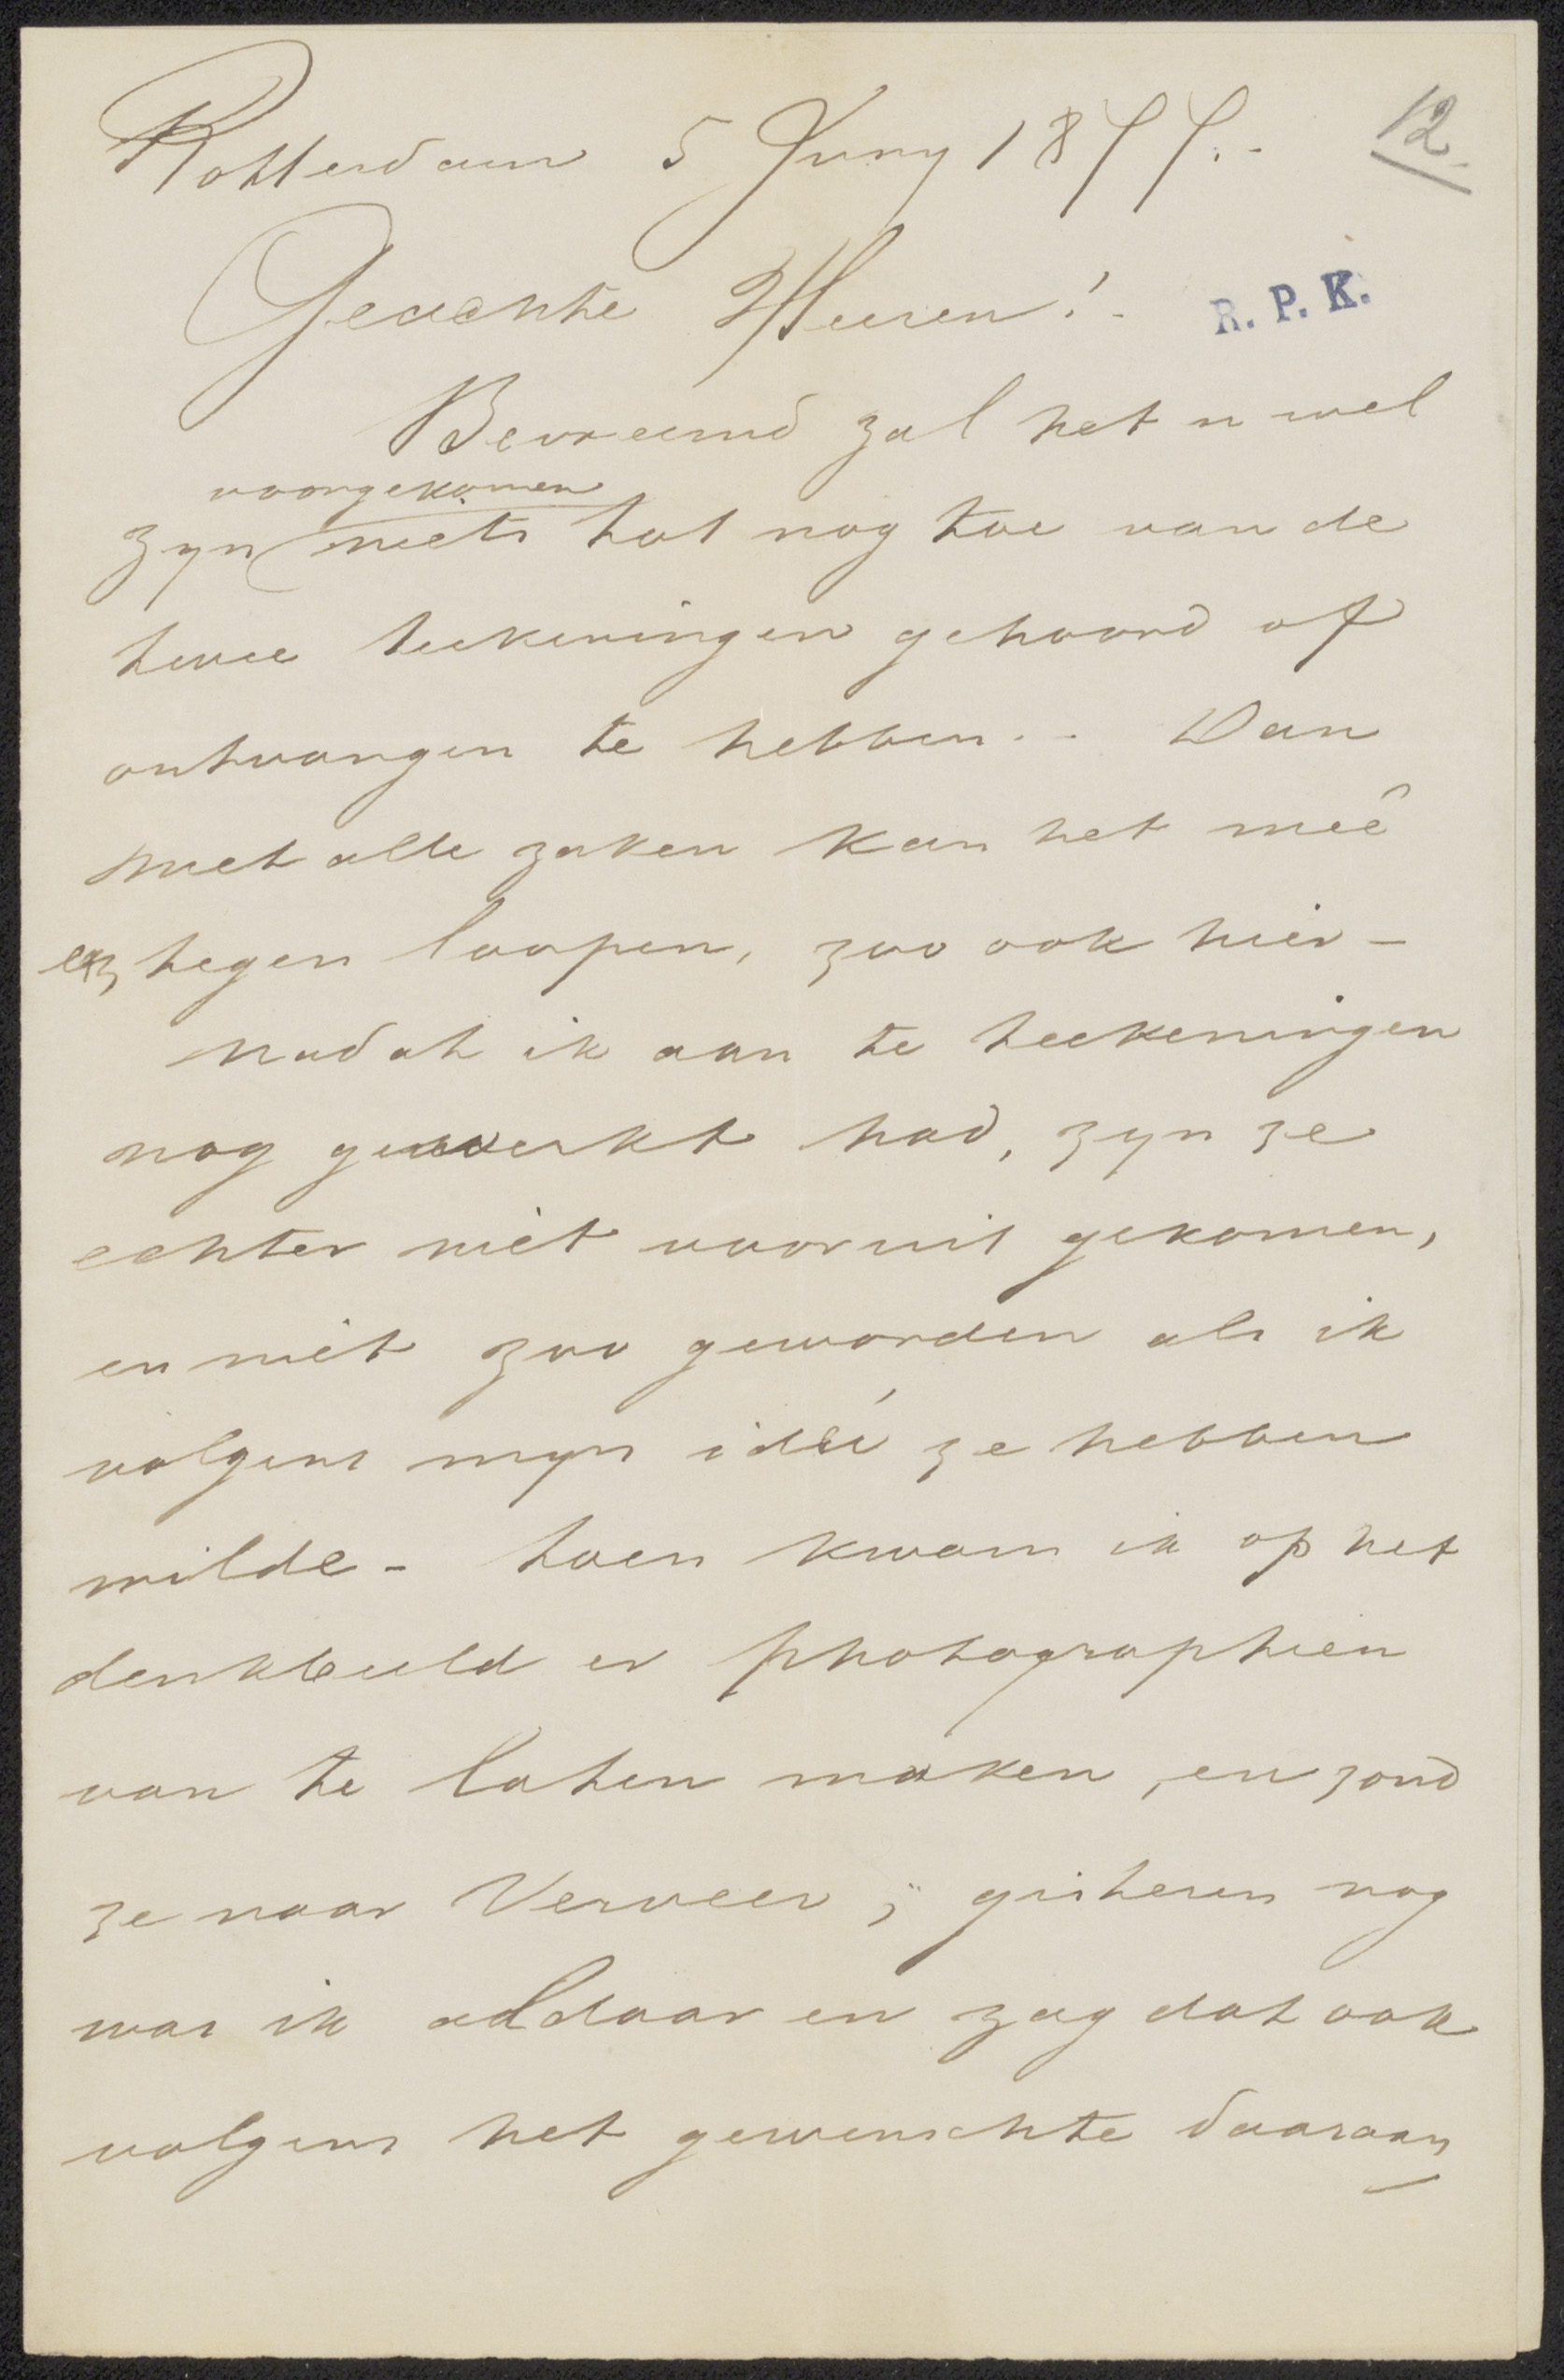 Rotterdam 5 Juny 1877.-
12
Geachte Heeren!-
R. P. K.
Bevreemd zal het u wel
voorgekomen
zyn niets tot nog toe van de
twee teekeningen gehoord of
ontvangen te hebben.- Dan
met alle zaken kan het meê
en tegen loopen, zoo ook hier -
nadat ik aan te teekeningen
nog gewerkt had, zyn ze
echter niet vooruit gekomen,
en niet zoo geworden als ik
volgens myn idéé ze hebben
wilde - toen kwam ik op het
denkbeeld er photographien
van te laten maken, en zond
ze naar Verveer; gisteren nog
was ik aldaar en zag dat ook
volgens het gewenschte daaraan